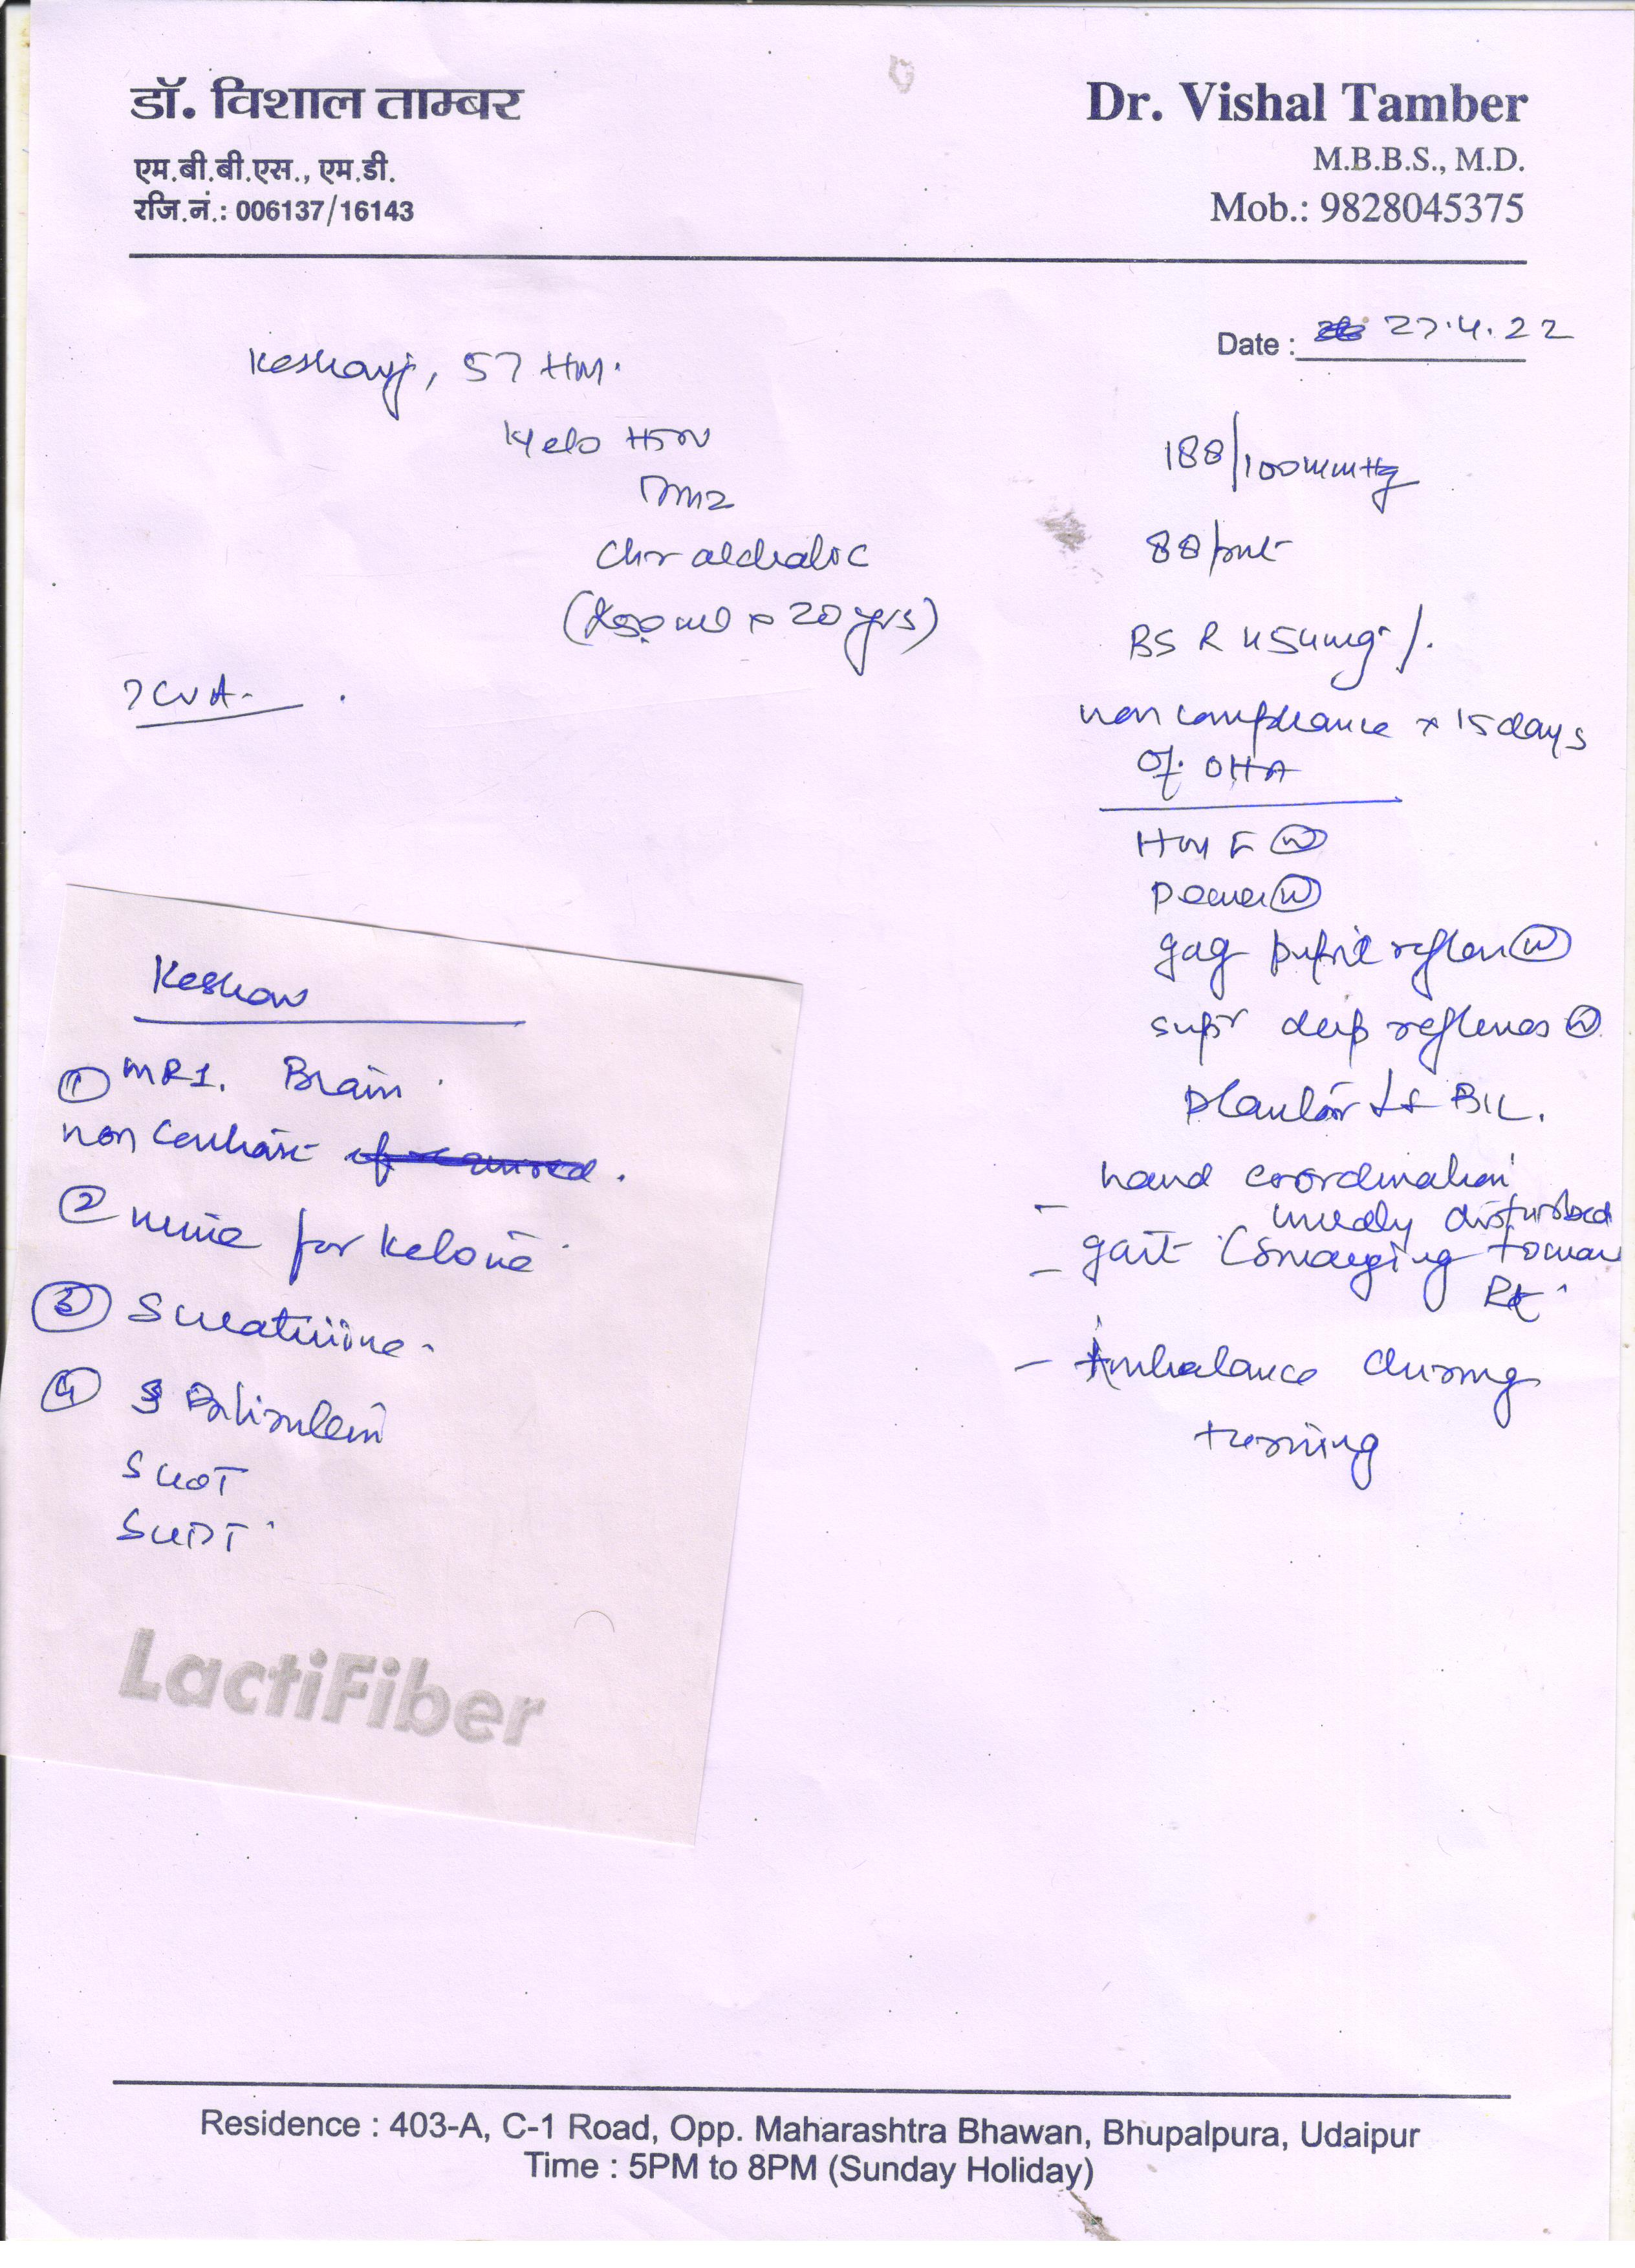 डॉ. विशाल ताम्बर
एम.बी.बी.एस., एम.डी.
रजि.नं.: 006137/16143
Dr. Vishal Tamber
M.B.B.S., M.D.
Mob.: 9828045375
Date : 27.4.22
Keshavji, 57 HM.
K/c/o HTN
DM2
Chr alcoholic
( x 20 yrs)
? CVA
188/100 mmHg
88/mt
BSR 454mg%
non compliance x 15 days
of OHA
HMF (N)
Power (N)
gag pupil reflex (N)
supr deep reflexes (N)
Plantar ↓↓ B/L.
- hand coordination
mildly disturbed
- gait (swaying toward
Rt
- Imbalance during
turning
Keshav
① MRI. Brain
non contrast
② urine for ketone
③ S creatinine
④ S Bilirubin
SGOT
SGPT
LactiFiber
Residence : 403-A, C-1 Road, Opp. Maharashtra Bhawan, Bhupalpura, Udaipur
Time : 5PM to 8PM (Sunday Holiday)